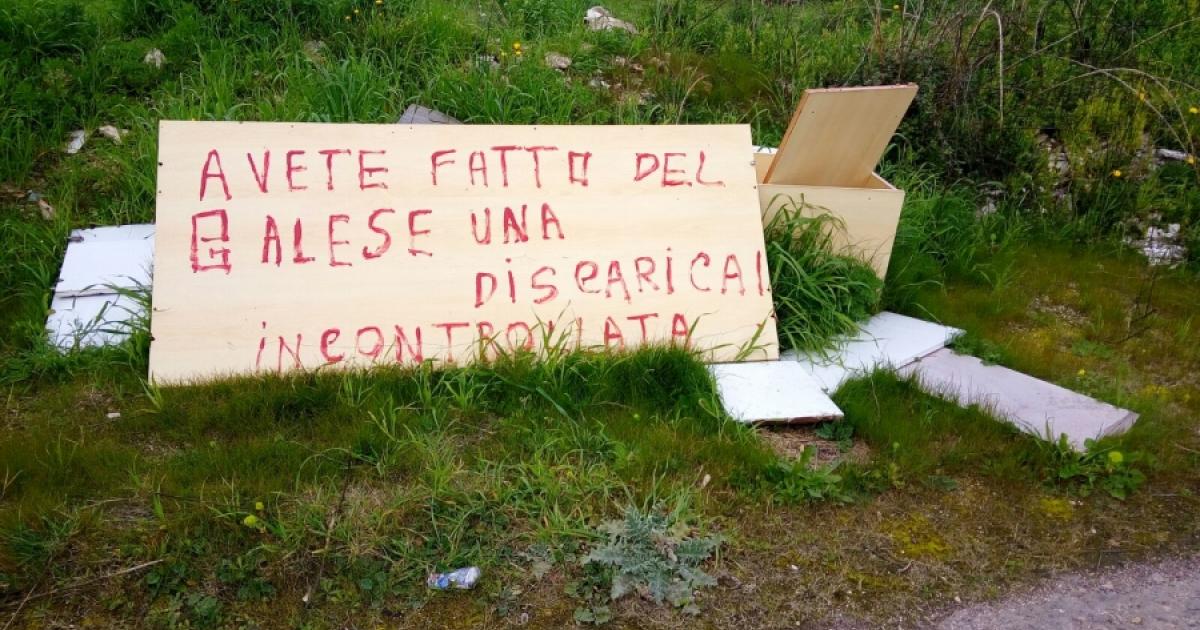 AVETE FATTO DEL
GALESE UNA
DISCARICA
INCONTROLLATA